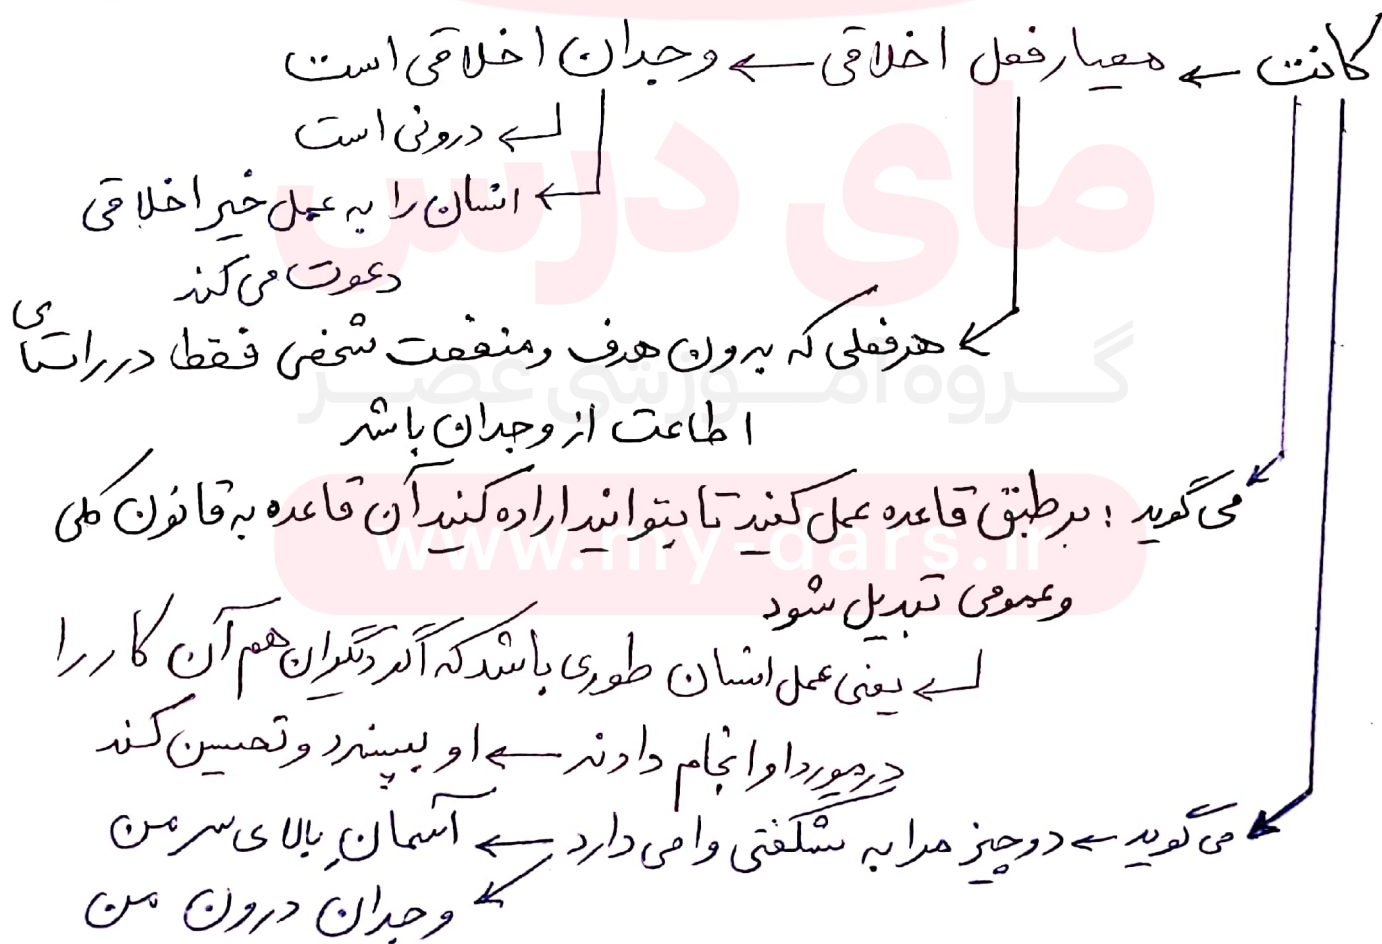 کانت ← معیار فعل اخلاقی ← وجدان اخلاقی است
← درونی است
← انسان را به عمل خیر اخلاقی
دعوت می کند
← هر فعلی که بدون هدف و منفعت شخصی فقط در راستای
اطاعت از وجدان باشد
می گوید : بر طبق قاعده عمل کنید تا بتوانید اراده کنید آن قاعده به قانون کلی
و عمومی تبدیل شود
← یعنی عمل انسان طوری باشد که اگر دیگران هم آن کار را
در مورد او انجام دادند ← او بپسندد و تحسین کند
می گوید ← دو چیز مرا به شگفتی وا می دارد ← آسمانِ بالای سر من
← وجدانِ درون من
مای درس
گروه آموزشی عصر
www.my-dars.ir